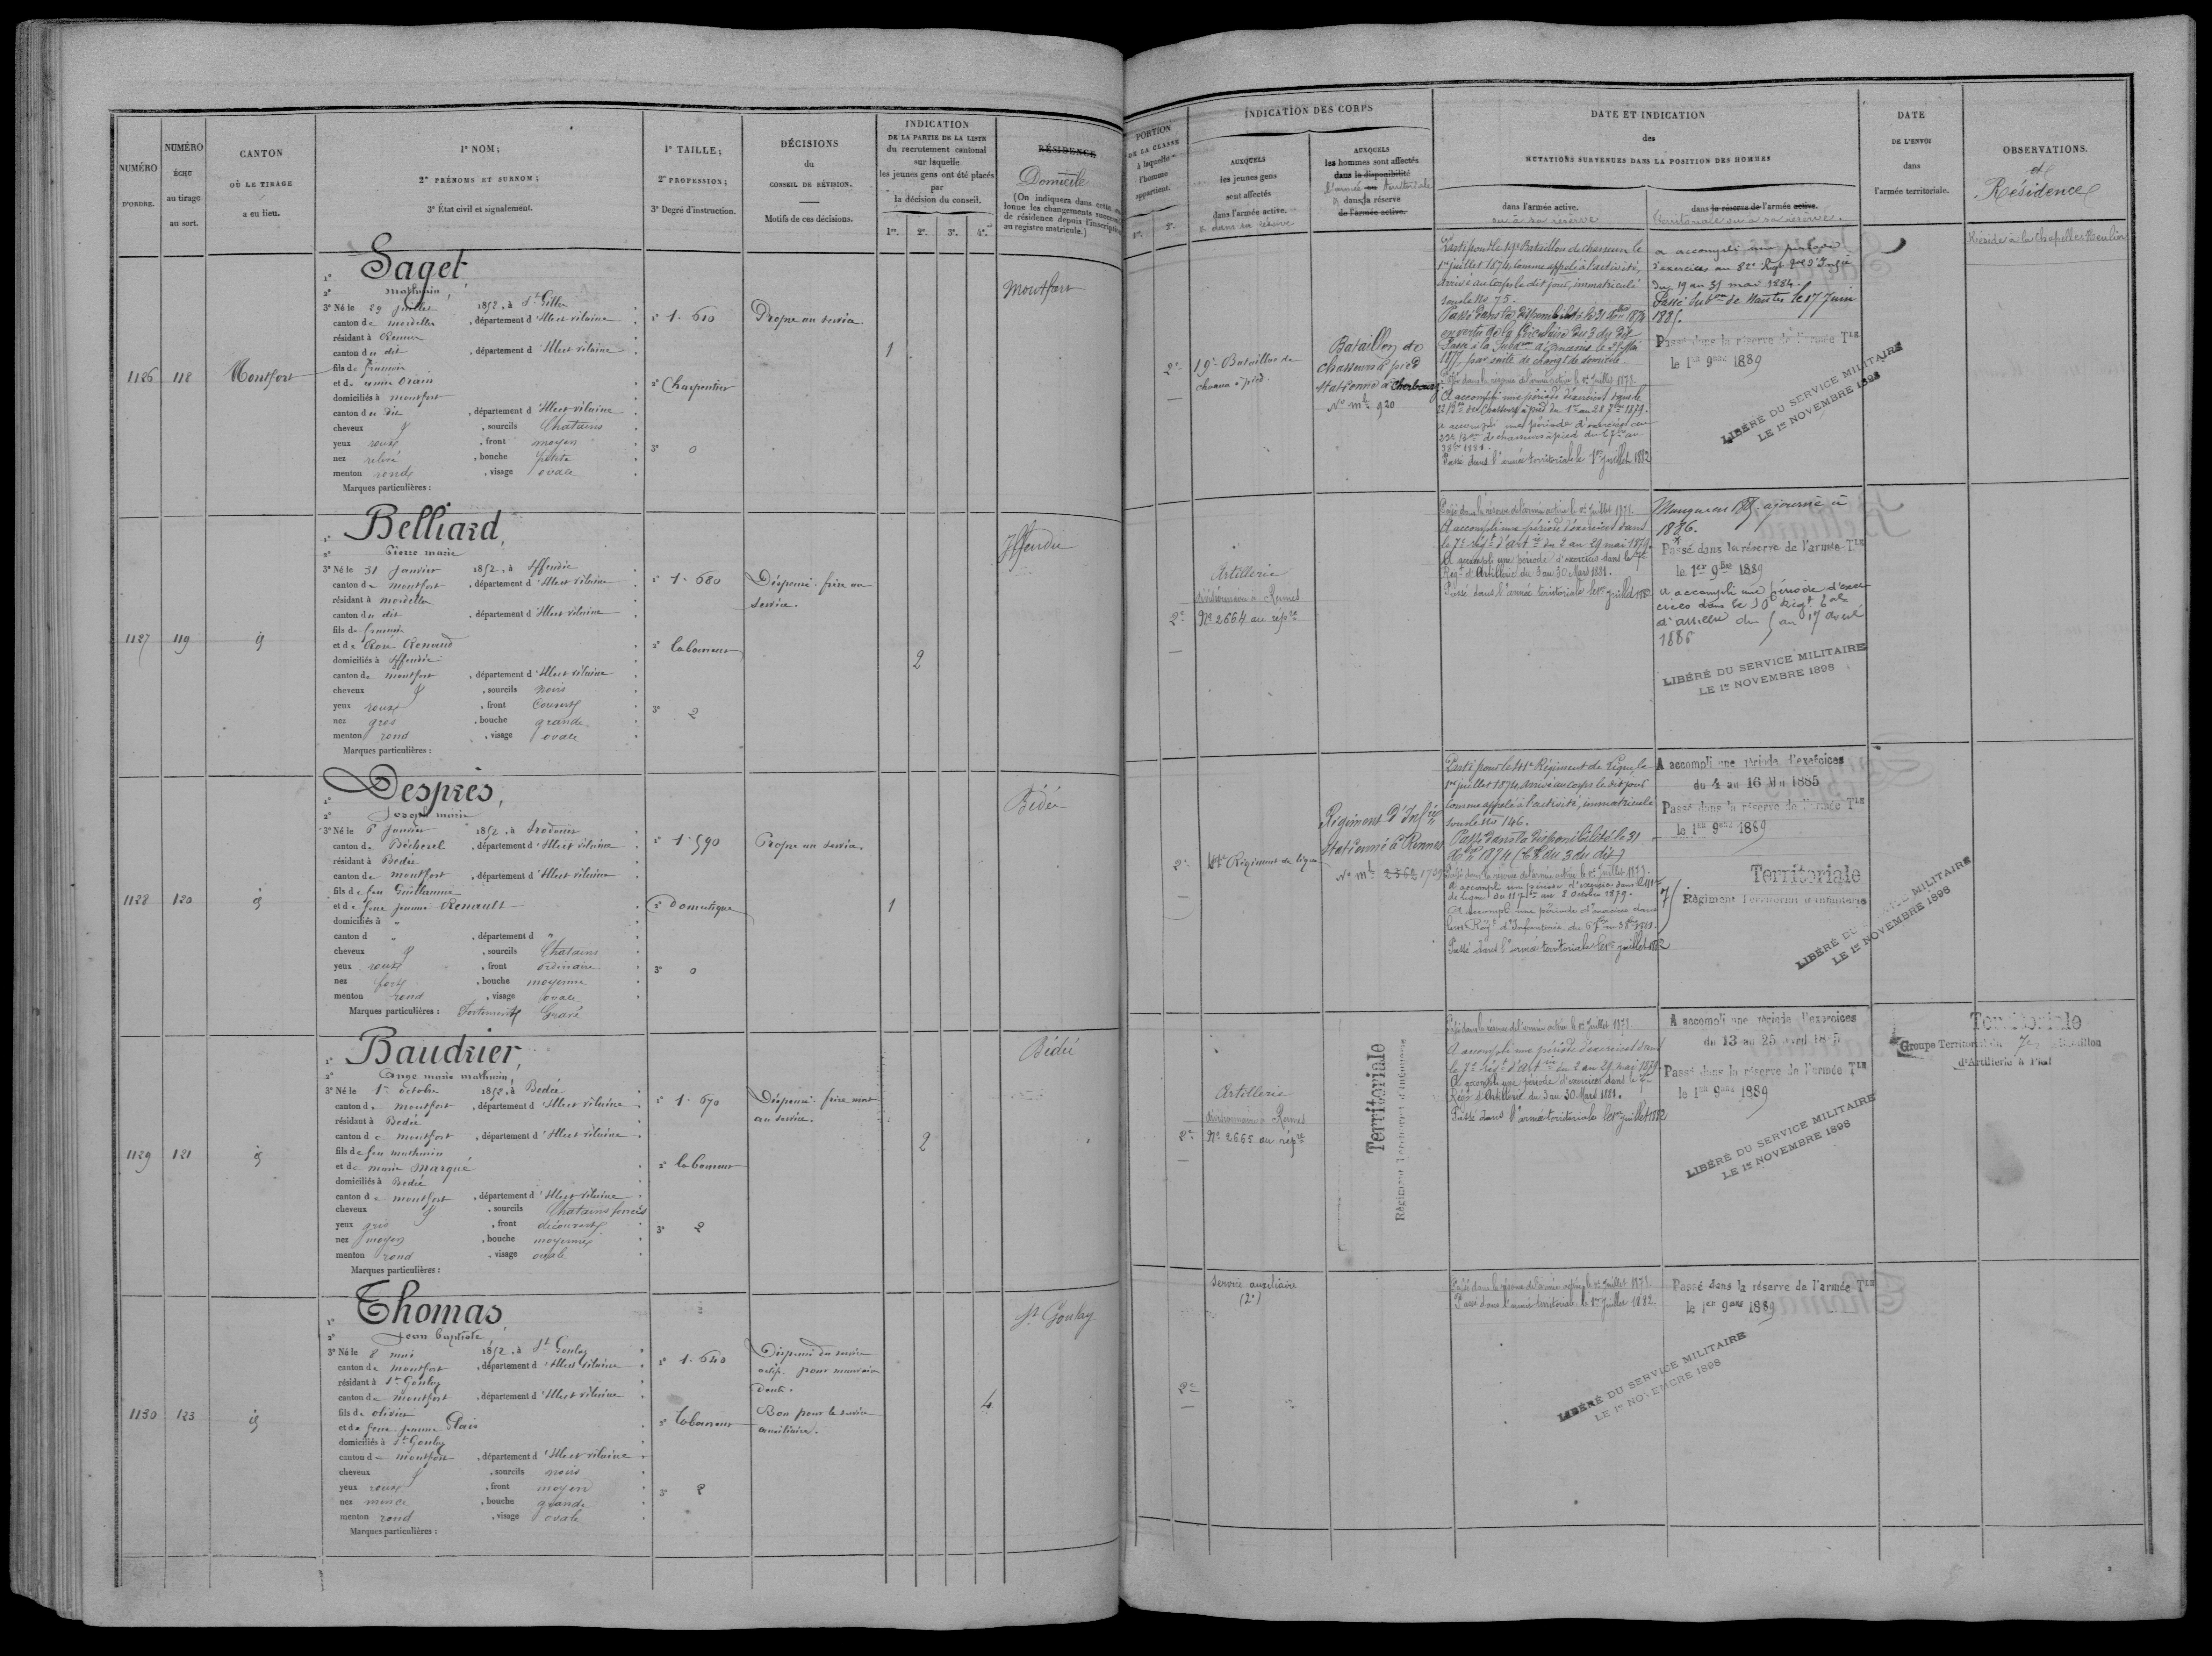 NUMÉRO
D'ORDRE.
NUMÉRO
ÉCHU
au tirage
au sort.
CANTON
OÙ LE TIRAGE
a eu lieu.
1º NOM;
2º PRÉNOMS ET SURNOM;
3º État civil et signalement.
1º TAILLE;
2º PROFESSION;
3º Degré d'instruction.
DÉCISIONS
du
CONSEIL DE RÉVISION.
Motifs de ces décisions.
INDICATION
DE LA PARTIE DE LA LISTE
du recrutement cantonal
sur laquelle
les jeunes gens ont été placés
par
la décision du conseil.
1re. 2e. 3e. 4e.
RÉSIDENCE
Domicile
(On indiquera dans cette
lonne les changements
de résidence depuis l'inscription
au registre matricule.)
PORTION
DE LA CLASSE
à laquelle
l'homme
appartient.
1re. 2e.
INDICATION DES CORPS
AUXQUELS
les jeunes gens
sont affectés
dans l'armée active.
& dans sa réserve
AUXQUELS
les hommes sont affectés
dans la disponibilité
l'armée ou territoriale
& dans la réserve
de l'armée active
DATE ET INDICATION
des
MUTATIONS SURVENUES DANS LA POSITION DES HOMMES
dans l'armée active.
ou à sa réserve
dans la réserve de l'armée active.
territoriale ou à sa réserve.
DATE
DE L'ENVOI
dans
l'armée territoriale.
OBSERVATIONS.
et
Résidence
1126
118
Montfort
1º Saget
2º mathurin,
3º Né le 29 juillet 1852, à St Gilles
canton de mordelles, département d'Ille et vilaine
résidant à Rennes
canton du dit, département d'Ille et vilaine
fils de francois
et de anne Orain
domiciliés à montfort
canton du dit, département d'Ille et vilaine
cheveux &, sourcils Chatains
yeux roux, front moyen
nez relevé, bouche petite
menton rond, visage ovale
Marques particulières :
1º 1.610
2º Charpentier
3º 0
Propre au service.
1
Montfort
2e
19e Bataillon de
chasseurs à pied.
Bataillon de
chasseurs à pied
stationné à Cherbourg
No mle 920
Parti pour le 19e Bataillon de chasseurs le
1er juillet 1874, comme appelé à l'activité,
arrivé au corps le dit jour, immatriculé
sous le No 75.
Passé dans la disponibilité le 31 Xbre 1874
en vertu de la Circulaire du 3 du dit
1877, par suite de changt de domicile.
Passé dans la réserve de l'armée active le 1er Juillet 1878.
A accompli une période d'exercices dans le
chasseurs à pied du 1er au 28 7bre 1879.
a accompli une période d'exercices au
de chasseurs à pied du 6 7bre au
3 8bre 1881.
Passé dans l'armée territoriale le 1er juillet 1882
a accompli une période
d'exercices au 82e Régt
du 19 au 31 mai 1884.
Passé Subon de Nantes le 17 Juin
1885.
Passé dans la réserve de l'armée Tle
le 1er 9bre 1889
LIBÉRÉ DU SERVICE MILITAIRE
LE 1er NOVEMBRE 1898
Réside à la Chapelle Heulin
1127
119
id
1º Belliard,
2º Pierre marie
3º Né le 31 Janvier 1852, à Iffendic
canton de montfort, département d'Ille et vilaine
résidant à mordelles
canton du dit, département d'Ille et vilaine
fils de francois
et de Rose Renaud
domiciliés à Iffendic
canton de montfort, département d'Ille et vilaine
cheveux &, sourcils noirs
yeux roux, front Couvert
nez gros, bouche grande
menton rond, visage ovale
Marques particulières :
1º 1.680
2º laboureur
3º 2
Dispensé. frère au
service.
2
Iffendic
2e
Artillerie
divisionnaire à Rennes
No 2664 au répre
Passé dans la réserve de l'armée active le 1er Juillet 1878.
A accompli une période d'exercices dans
le 7e régt d'artie du 2 au 29 mai 1879.
A accompli une période d'exercices dans le 7e
Régt d'Artillerie du 3 au 30 Mars 1881.
Passé dans l'armée territoriale le 1er juillet 1882
ajourné à
1886.
Passé dans la réserve de l'armée Tle
le 1er 9bre 1889
a accompli une période d'exer
cices dans le 10e Régt
d'artillerie du 5 au 17 avril
1886
LIBÉRÉ DU SERVICE MILITAIRE
LE 1er NOVEMBRE 1898
1128
120
id
1º Desprès,
2º Joseph marie
3º Né le 6 Janvier 1852, à Irodouër
canton de Bécherel, département d'Ille et vilaine
résidant à Bedée
canton de montfort, département d'Ille et vilaine
fils de feu Guillaume
et de feue jeanne Renault
domiciliés à "
canton d ", département d "
cheveux &, sourcils Chatains
yeux roux, front ordinaire
nez fort, bouche moyenne
menton rond, visage ovale
Marques particulières : Fortement Gravé
1º 1.590
2º Domestique
3º 0
Propre au service
1
Bédée
2e
41e Régiment de ligne
Régiment d'Infie
stationné à Rennes
No mle
Parti pour le 41e Régiment de ligne le
1er juillet 1874, arrivé au corps le dit jour
comme appelé à l'activité, immatriculé
sous le No 146.
Passé dans la disponibilité le 31
Xbre 1874 (Cre du 3 du dit)
Passé dans la réserve de l'armée active le 1er Juillet 1878.
a accompli une période d'exercices dans le 41e
de ligne du 11 7bre au 8 octobre 1879.
A accompli une période d'exercices dans
leur Régt d'Infanterie du 6 7bre au 3 8bre 1881.
Passé dans l'armée territoriale le 1er juillet 1882
A accompli une période d'exercices
du 4 au 16 Mai 1885
Passé dans la réserve de l'armée Tle
le 1er 9bre 1889
Territoriale
75 Régiment Territorial d'Infanterie
LIBÉRÉ DU SERVICE MILITAIRE
LE 1er NOVEMBRE 1898
1129
121
id
1º Baudrier,
2º Ange marie mathurin,
3º Né le 1er octobre 1852, à Bedée
canton de montfort, département d'Ille et vilaine
résidant à Bedée
canton de montfort, département d'Ille et vilaine
fils de feu mathurin
et de marie Marqué
domiciliés à Bedée
canton de montfort, département d'Ille et vilaine
cheveux &, sourcils Chatains foncés
yeux gris, front découvert
nez moyen, bouche moyenne
menton rond, visage ovale
Marques particulières :
1º 1.670
2º laboureur
3º 2
Dispensé. frère mort
au service.
2
Bédée
2e
Artillerie
divisionnaire à Rennes
No 2665 au répre
Territoriale
Régiment Territorial d'Infanterie
Passé dans la réserve de l'armée active le 1er Juillet 1878.
A accompli une période d'exercices dans
le 7e régt d'artie du 2 au 29 mai 1879.
A accompli une période d'exercices dans le 7e
Régt d'Artillerie du 3 au 30 Mars 1881.
Passé dans l'armée territoriale le 1er juillet 1882
A accompli une période d'exercices
du 13 au 25 avril 1885
Passé dans la réserve de l'armée Tle
le 1er 9bre 1889
LIBÉRÉ DU SERVICE MILITAIRE
LE 1er NOVEMBRE 1898
Territoriale
Groupe Territorial du Bataillon
d'Artillerie à Pied
1130
123
id
1º Thomas,
2º Jean baptiste,
3º Né le 8 mai 1852, à St Gonlay
canton de montfort, département d'Ille et vilaine
résidant à St Gonlay
canton de montfort, département d'Ille et vilaine
fils de olivier
et de feue jeanne Plais
domiciliés à St Gonlay
canton de montfort, département d'Ille et vilaine
cheveux &, sourcils noirs
yeux roux, front moyen
nez mince, bouche grande
menton rond, visage ovale
Marques particulières :
1º 1.640
2º laboureur
3º 2
Dispensé du service
actif. pour mauvaise
dents.
Bon pour le service
auxiliaire.
4
St Gonlay
2e
Service auxiliaire
(2e)
Passé dans la réserve de l'armée active le 1er Juillet 1878.
Passé dans l'armée territoriale le 1er Juillet 1882.
Passé dans la réserve de l'armée Tle
le 1er 9bre 1889
LIBÉRÉ DU SERVICE MILITAIRE
LE 1er NOVEMBRE 1898